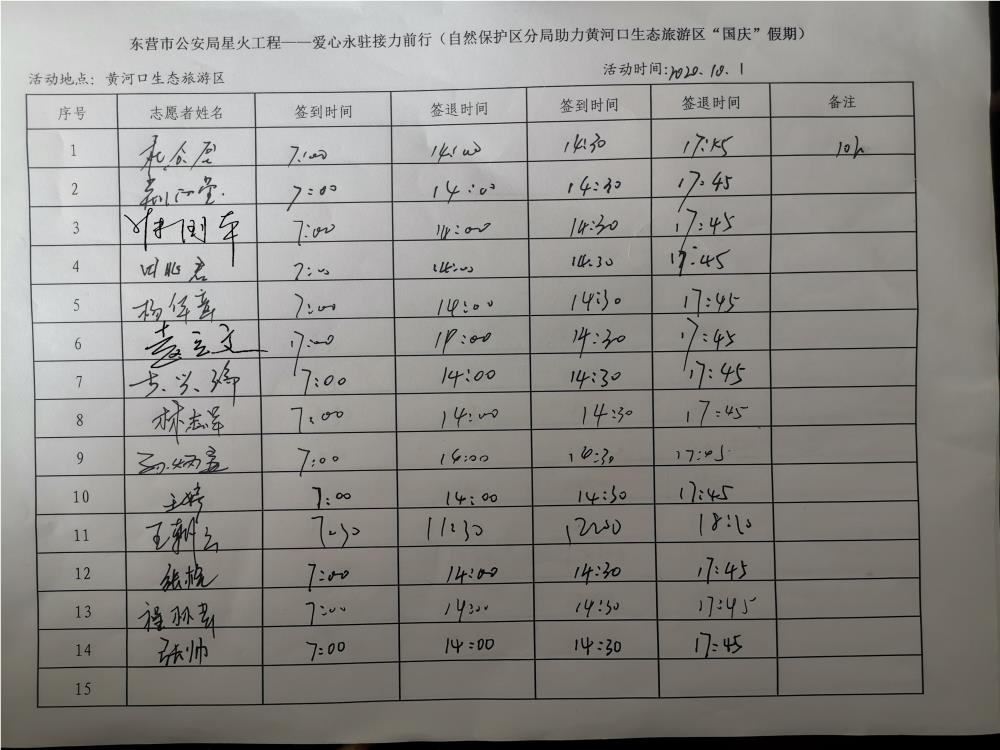 东营市公安局星火工程——爱心永驻接力前行（自然保护区分局助力黄河口生态旅游区“国庆”假期）
活动地点：黄河口生态旅游区 活动时间:2020.10.1
序号 志愿者姓名 签到时间 签退时间 签到时间 签退时间 备注
1 7:00 14:00 14:30 17:45 10h
2 7:00 14:00 14:30 17:45
3 7:00 14:00 14:30 17:45
4 7:00 14:00 14:30 17:45
5 7:00 14:00 14:30 17:45
6 17:00 14:30 17:45
7 7:00 14:00 14:30 17:45
8 林志军 7:00 14:00 14:30 17:45
9 7:00 14:00 14:30 17:45
10 王婷 7:00 14:00 14:30 17:45
11 7:30 11:30 12:00
12 张艳 7:00 14:00 14:30 17:45
13 7:00 14:00 14:30 17:45
14 张帅 7:00 14:00 14:30 17:45
15